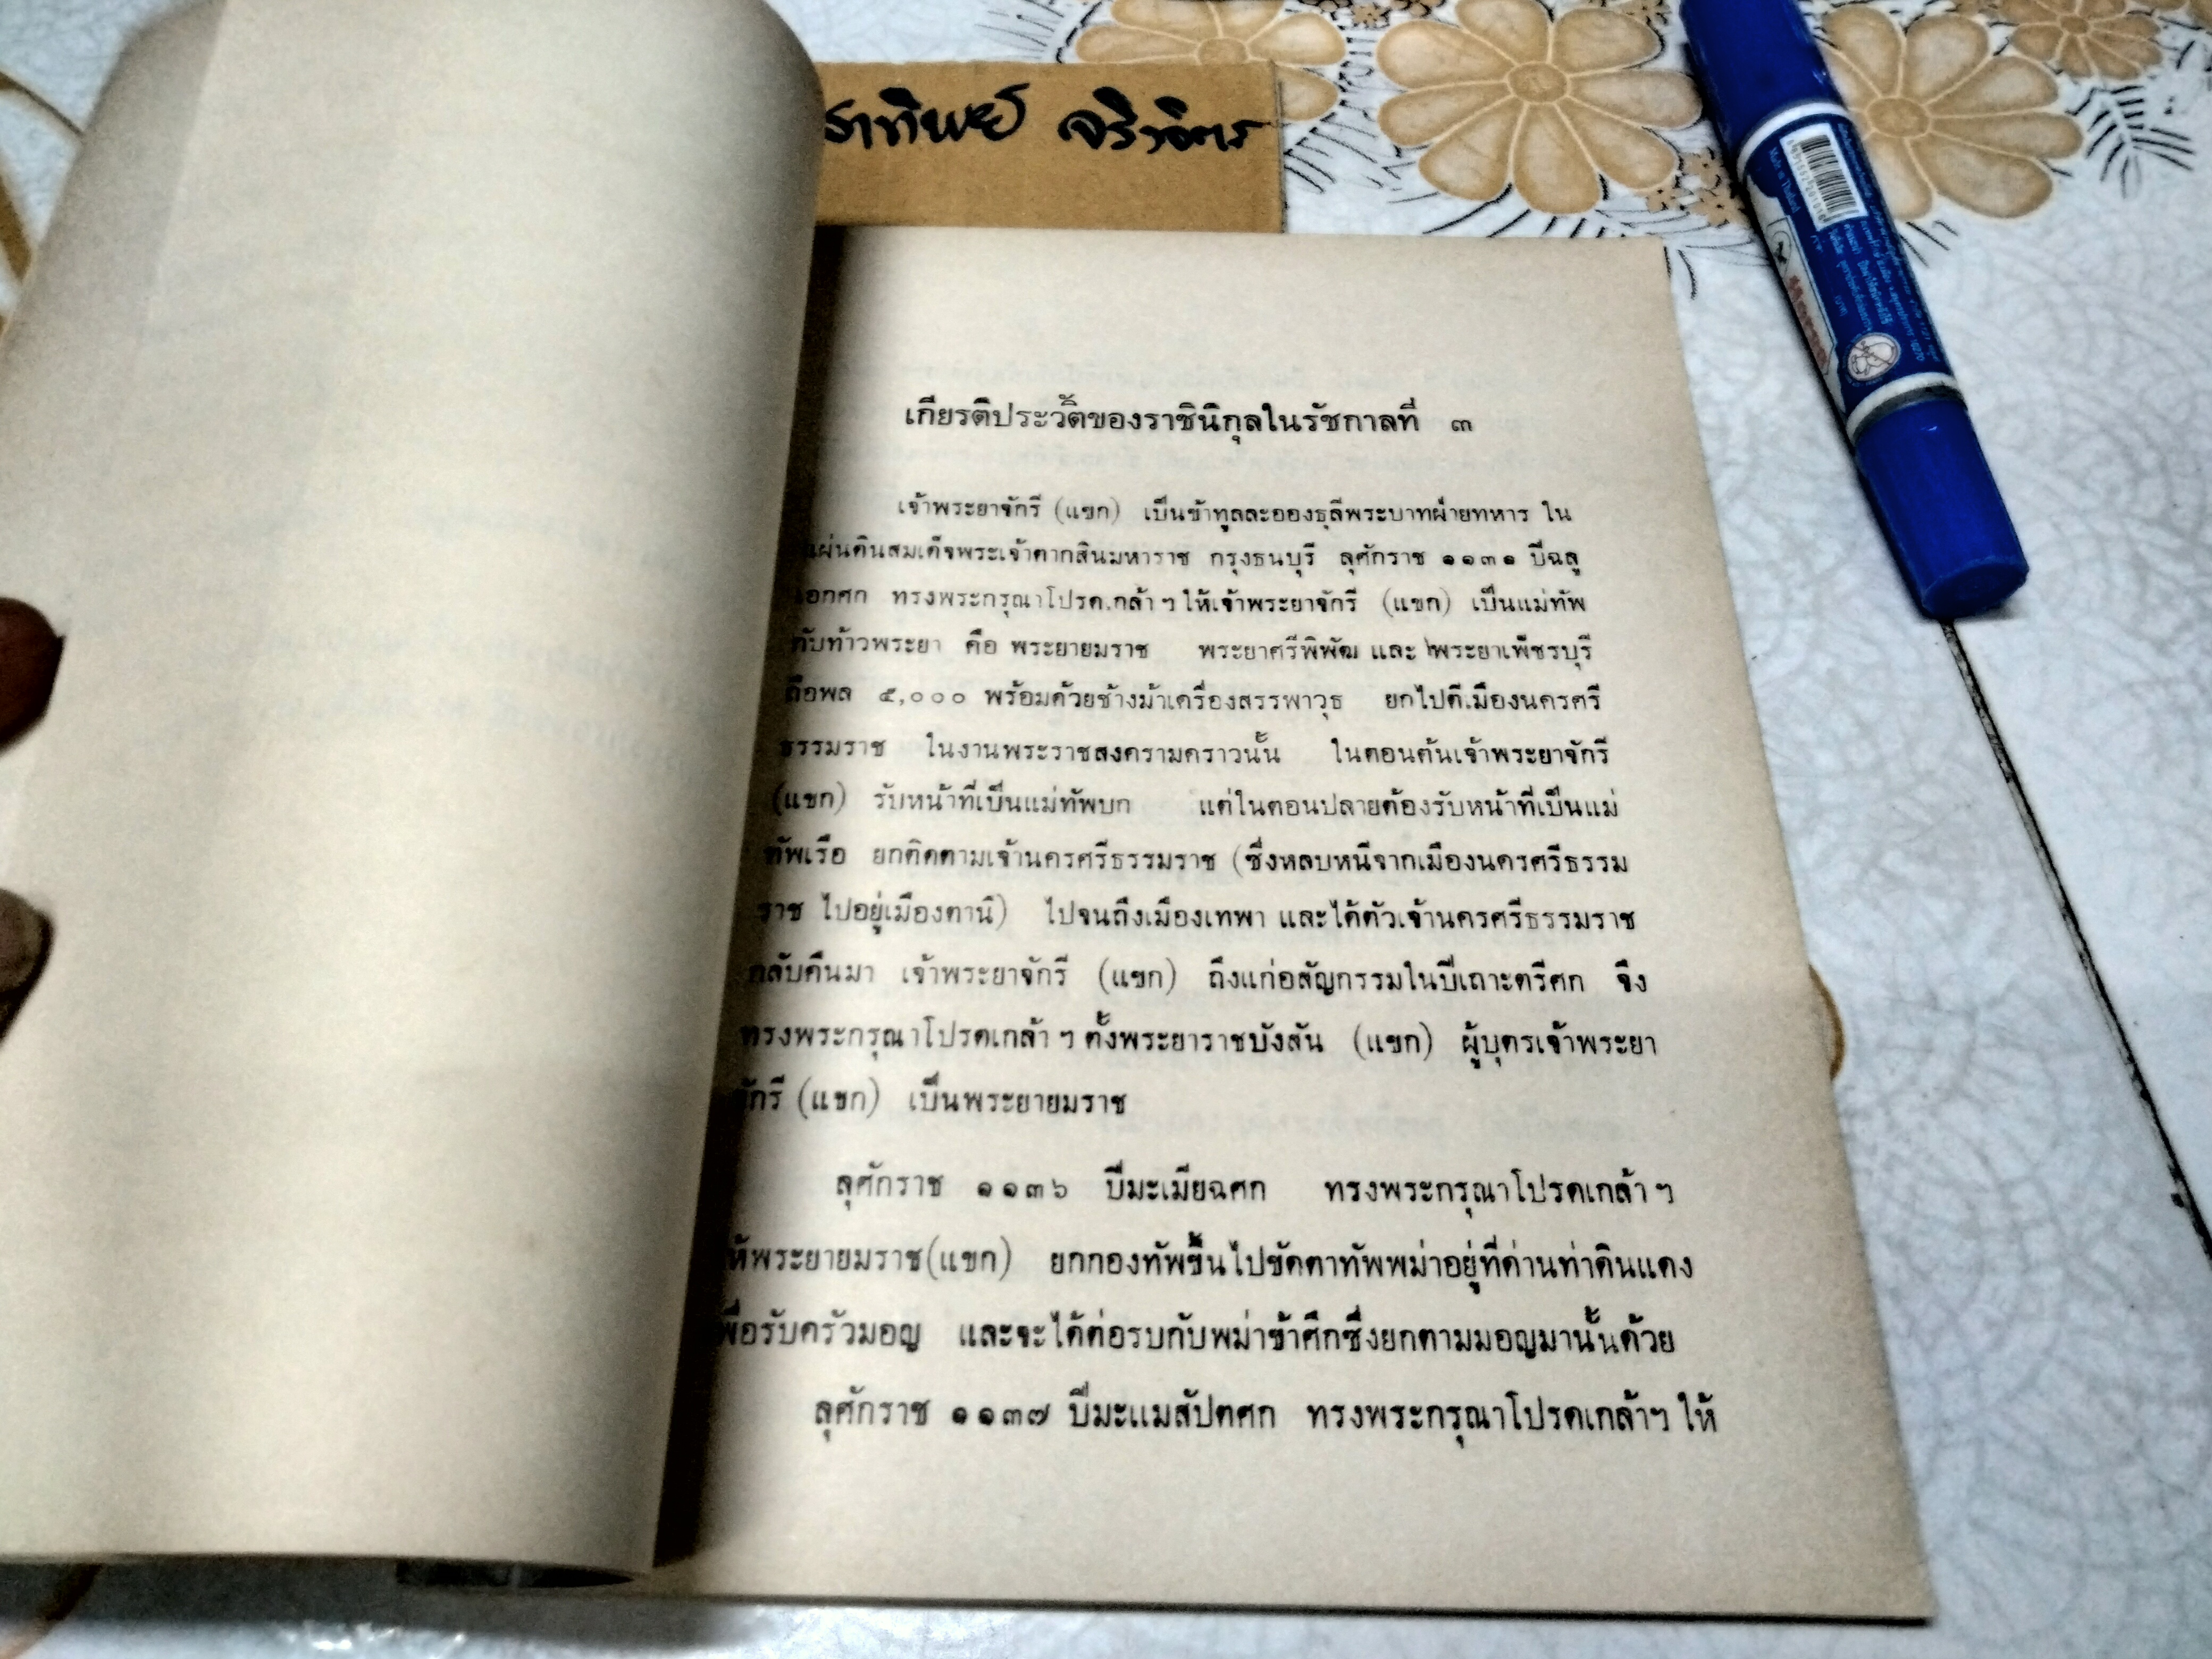 จริวจิตร
เกียรติประวัติของราชินิกุลในรัชกาลที่ ๓
เจ้าพระยาจักรี (แขก) เป็นข้าทูลละอองธุลีพระบาทฝ่ายทหาร ใน
แผ่นดินสมเด็จพระเจ้าตากสินมหาราช กรุงธนบุรี ลุศักราช ๑๑๓๑ ปีฉลู
เอกศก ทรงพระกรุณาโปรดเกล้า ฯ ให้เจ้าพระยาจักรี (แขก) เป็นแม่ทัพ
กับท้าวพระยา คือ พระยายมราช พระยาศรีพิพัฒ และ พระยาเพ็ชรบุรี
ถือพล ๕,๐๐๐ พร้อมด้วยช้างม้าเครื่องสรรพาวุธ ยกไปตีเมืองนครศรี
ธรรมราช ในงานพระราชสงครามคราวนั้น ในตอนต้นเจ้าพระยาจักรี
(แขก) รับหน้าที่เป็นแม่ทัพบก แต่ในตอนปลายต้องรับหน้าที่เป็นแม่
ทัพเรือ ยกติดตามเจ้านครศรีธรรมราช (ซึ่งหลบหนีจากเมืองนครศรีธรรม
ราช ไปอยู่เมืองตานี) ไปจนถึงเมืองเทพา และได้ตัวเจ้านครศรีธรรมราช
กลับคืนมา เจ้าพระยาจักรี (แขก) ถึงแก่อสัญกรรมในปีเถาะตรีศก จึง
ทรงพระกรุณาโปรดเกล้า ฯ ตั้งพระยาราชบังสัน (แขก) ผู้บุตรเจ้าพระยา
จักรี (แขก) เป็นพระยายมราช
ลุศักราช ๑๑๓๖ ปีมะเมียฉศก ทรงพระกรุณาโปรดเกล้า ฯ
ให้พระยายมราช(แขก) ยกกองทัพขึ้นไปขัดตาทัพพม่าอยู่ที่ด่านท่าดินแดง
เพื่อรับครัวมอญ และจะได้ต่อรบกับพม่าข้าศึกซึ่งยกตามมอญมานั้นด้วย
ลุศักราช ๑๑๓๗ ปีมะแมสัปตศก ทรงพระกรุณาโปรดเกล้าฯ ให้